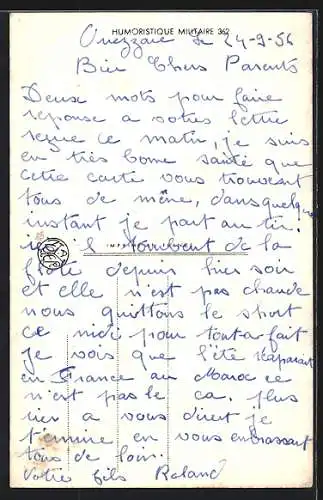 HUMORISTIQUE MILITAIRE 362
Ouezzane le 24-9-56
Bien Chers Parents
Deux mots pour faire
reponse a votres lettre
reçue ce matin, je suis
en très bonne santé que
cette carte vous trouvent
tous de même, dans quelque
instant je part au tir.
il tombent de la
flote depuis hier soir
et elle n'est pas chaude
nous quittons le short
ce midi pour tout-a-fait
je vois que l'été reaparait
en France au Maroc ce
n'est pas le ca. plus
rien a vous dirent je
termine en vous embrassant
tous de loin.
Votre fils Roland